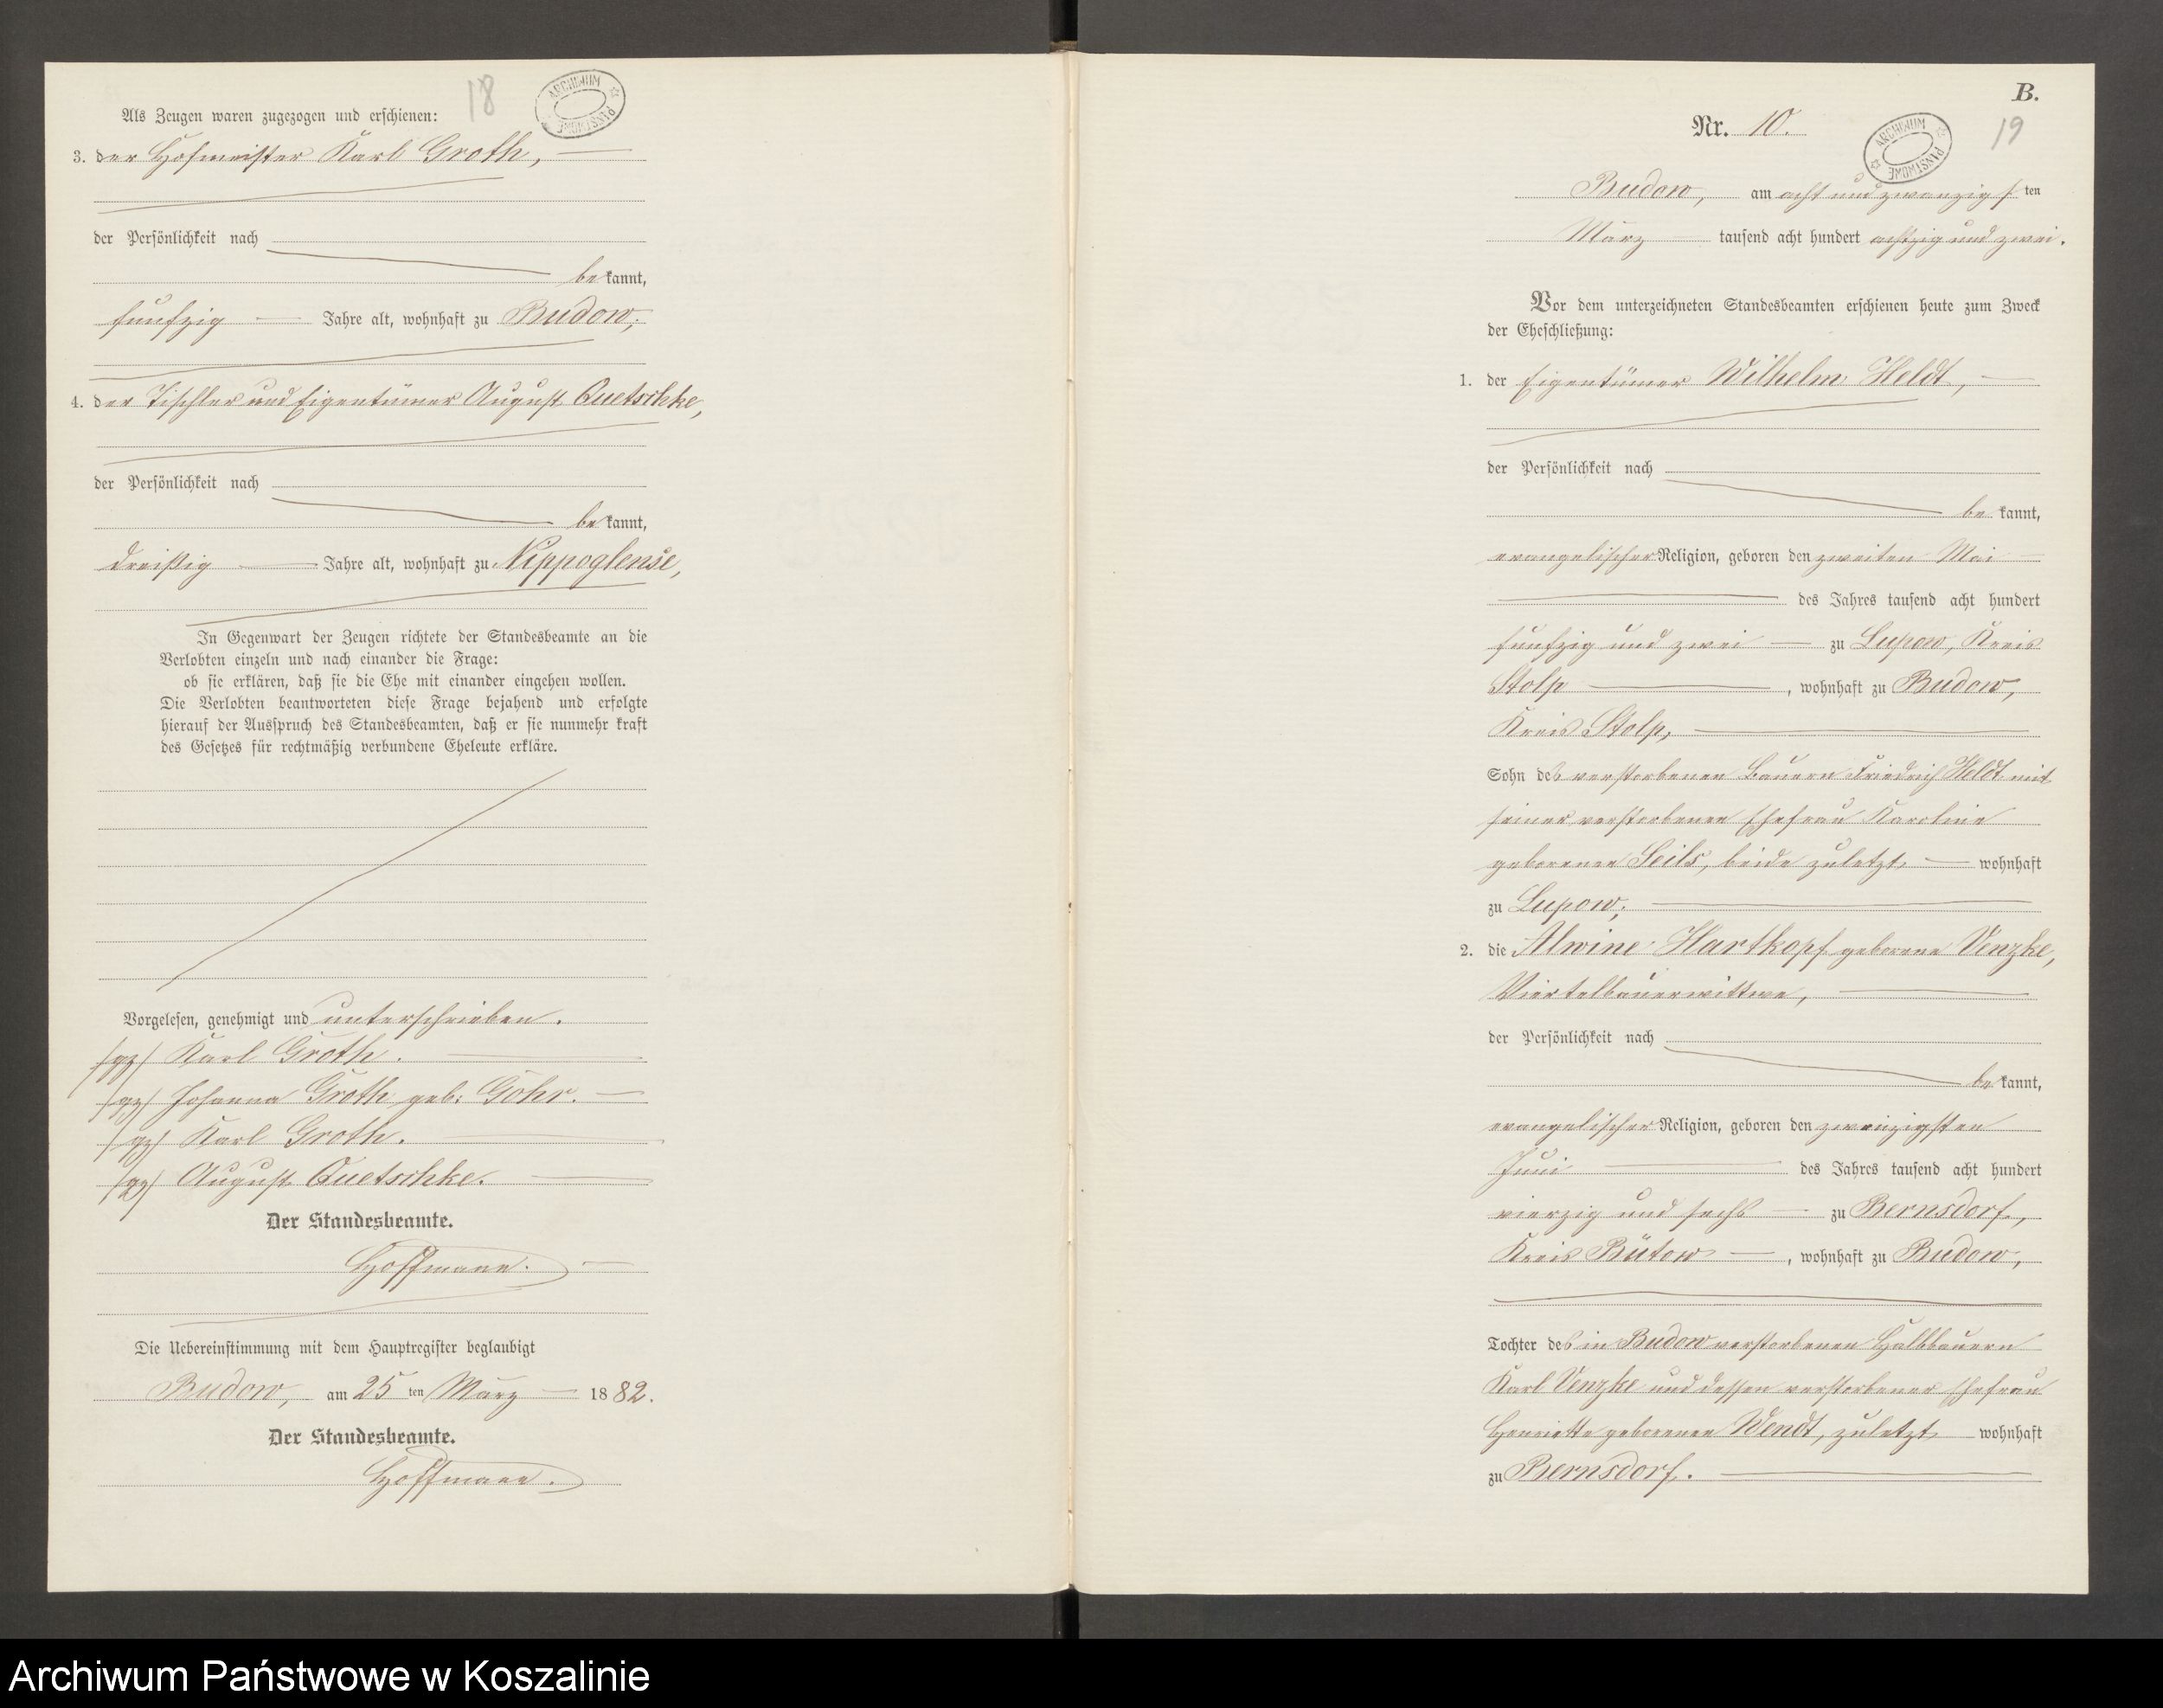 18
ARCHIWUM PAŃSTWOWE
Als Zeugen waren zugezogen und erschienen:
3. der Hofmeister Karl Groth,
der Persönlichkeit nach
bekannt,
fünfzig Jahre alt, wohnhaft zu Budow,
4. der Tischler und Eigentümer August Quetschke,
der Persönlichkeit nach
bekannt,
dreißig Jahre alt, wohnhaft zu Nippoglense,
In Gegenwart der Zeugen richtete der Standesbeamte an die
Verlobten einzeln und nach einander die Frage:
ob sie erklären, daß sie die Ehe mit einander eingehen wollen.
Die Verlobten beantworteten diese Frage bejahend und erfolgte
hierauf der Ausspruch des Standesbeamten, daß er sie nunmehr kraft
des Gesetzes für rechtmäßig verbundene Eheleute erkläre.
Vorgelesen, genehmigt und unterschrieben.
/gz/ Karl Groth.
/gz/ Johanna Groth geb: Gohr.
/gz/ Karl Groth.
/gz/ August Quetschke.
Der Standesbeamte.
Hoffmann.
Die Uebereinstimmung mit dem Hauptregister beglaubigt
Budow, am 25 ten März 1882.
Der Standesbeamte.
Hoffmann.
B.
Nr. 10.
19
ARCHIWUM PAŃSTWOWE
Budow, am acht und zwanzigsten
März tausend acht hundert achtzig und zwei.
Vor dem unterzeichneten Standesbeamten erschienen heute zum Zweck
der Eheschließung:
1. der Eigentümer Wilhelm Heldt,
der Persönlichkeit nach
bekannt,
evangelischer Religion, geboren den zweiten Mai
des Jahres tausend acht hundert
fünfzig und zwei zu Lupow, Kreis
Stolp, wohnhaft zu Budow,
Kreis Stolp,
Sohn des verstorbenen Bauern Friedrich Heldt mit
seiner verstorbenen Ehefrau Karoline
geborenen Seils, beide zuletzt wohnhaft
zu Lupow;
2. die Alwine Hartkopf geborene Venzke,
Viertelbauerwittwe,
der Persönlichkeit nach
bekannt,
evangelischer Religion, geboren den zwanzigsten
Juni des Jahres tausend acht hundert
vierzig und sechs zu Bernsdorf,
Kreis Bütow, wohnhaft zu Budow,
Tochter des in Budow verstorbenen Halbbauern
Karl Venzke und dessen verstorbener Ehefrau
Henriette geborenen Wendt, zuletzt wohnhaft
zu Bernsdorf.
Archiwum Państwowe w Koszalinie